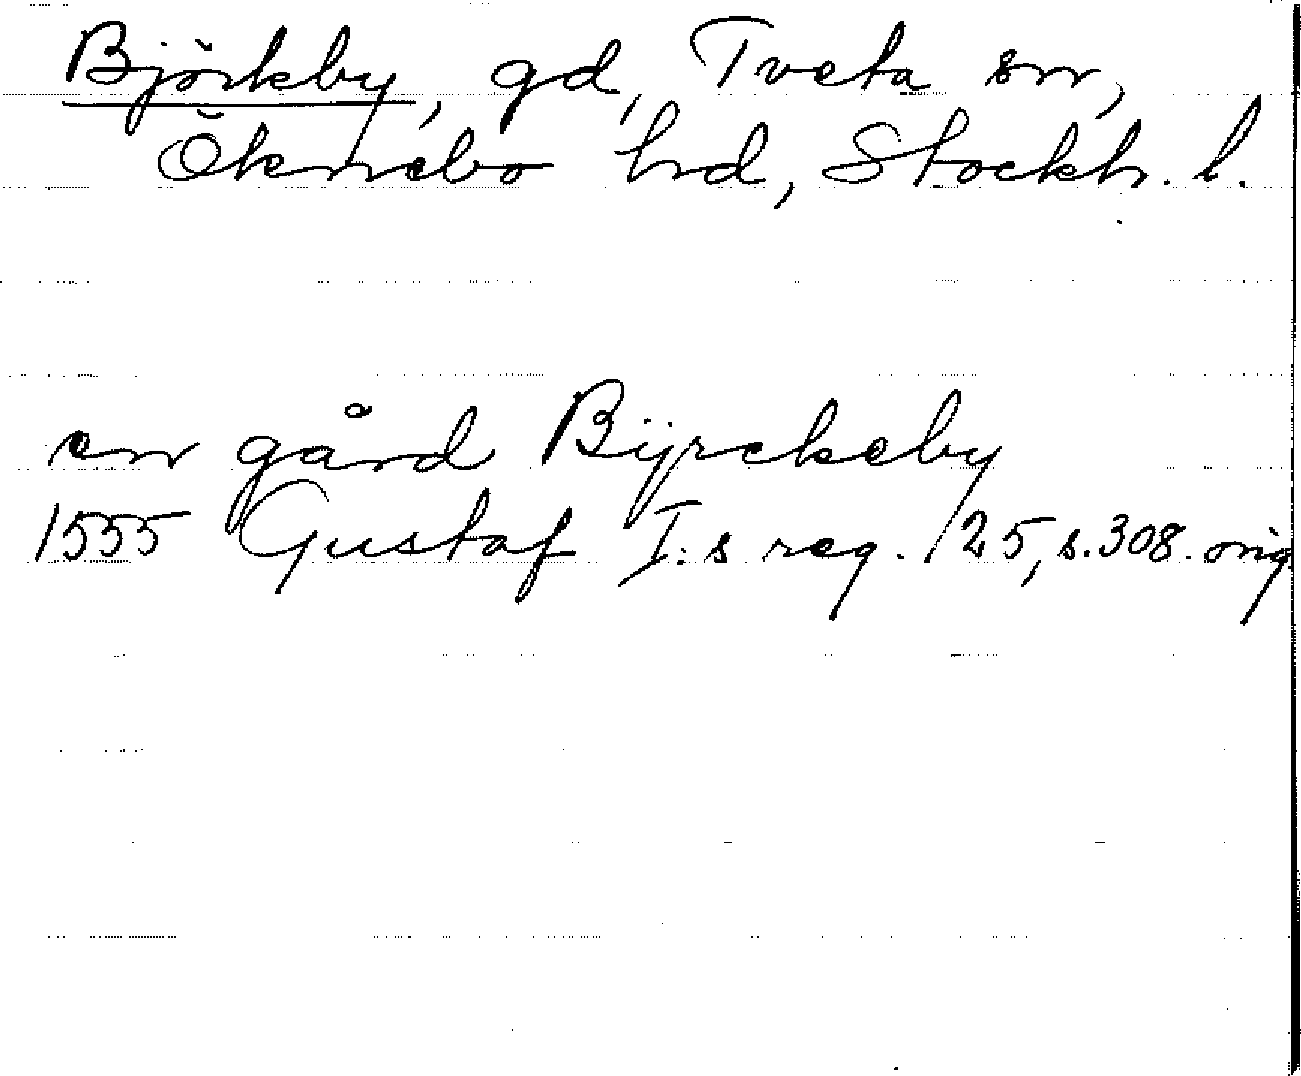 Björkby, gd, Tveta sn,
Öknebo hd, Stockh. l.
en gård Bÿrckeby
1555 Gustaf I:s reg. /25, s.308. orig